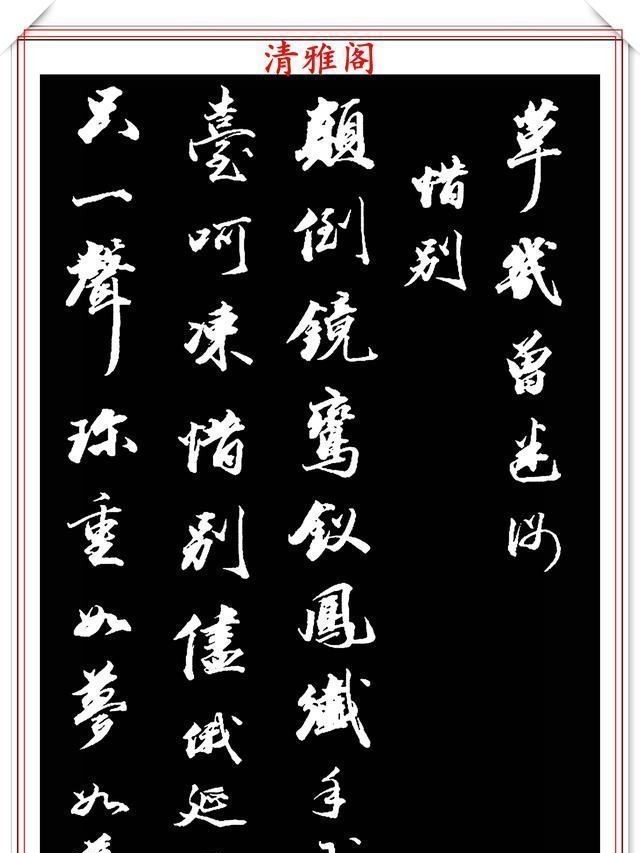 清雅阁
草裁曾迷汝
惜别
顛倒鏡鸞釵鳳纖手
臺呵凍惜别儘俄延
只一聲珍重如夢如